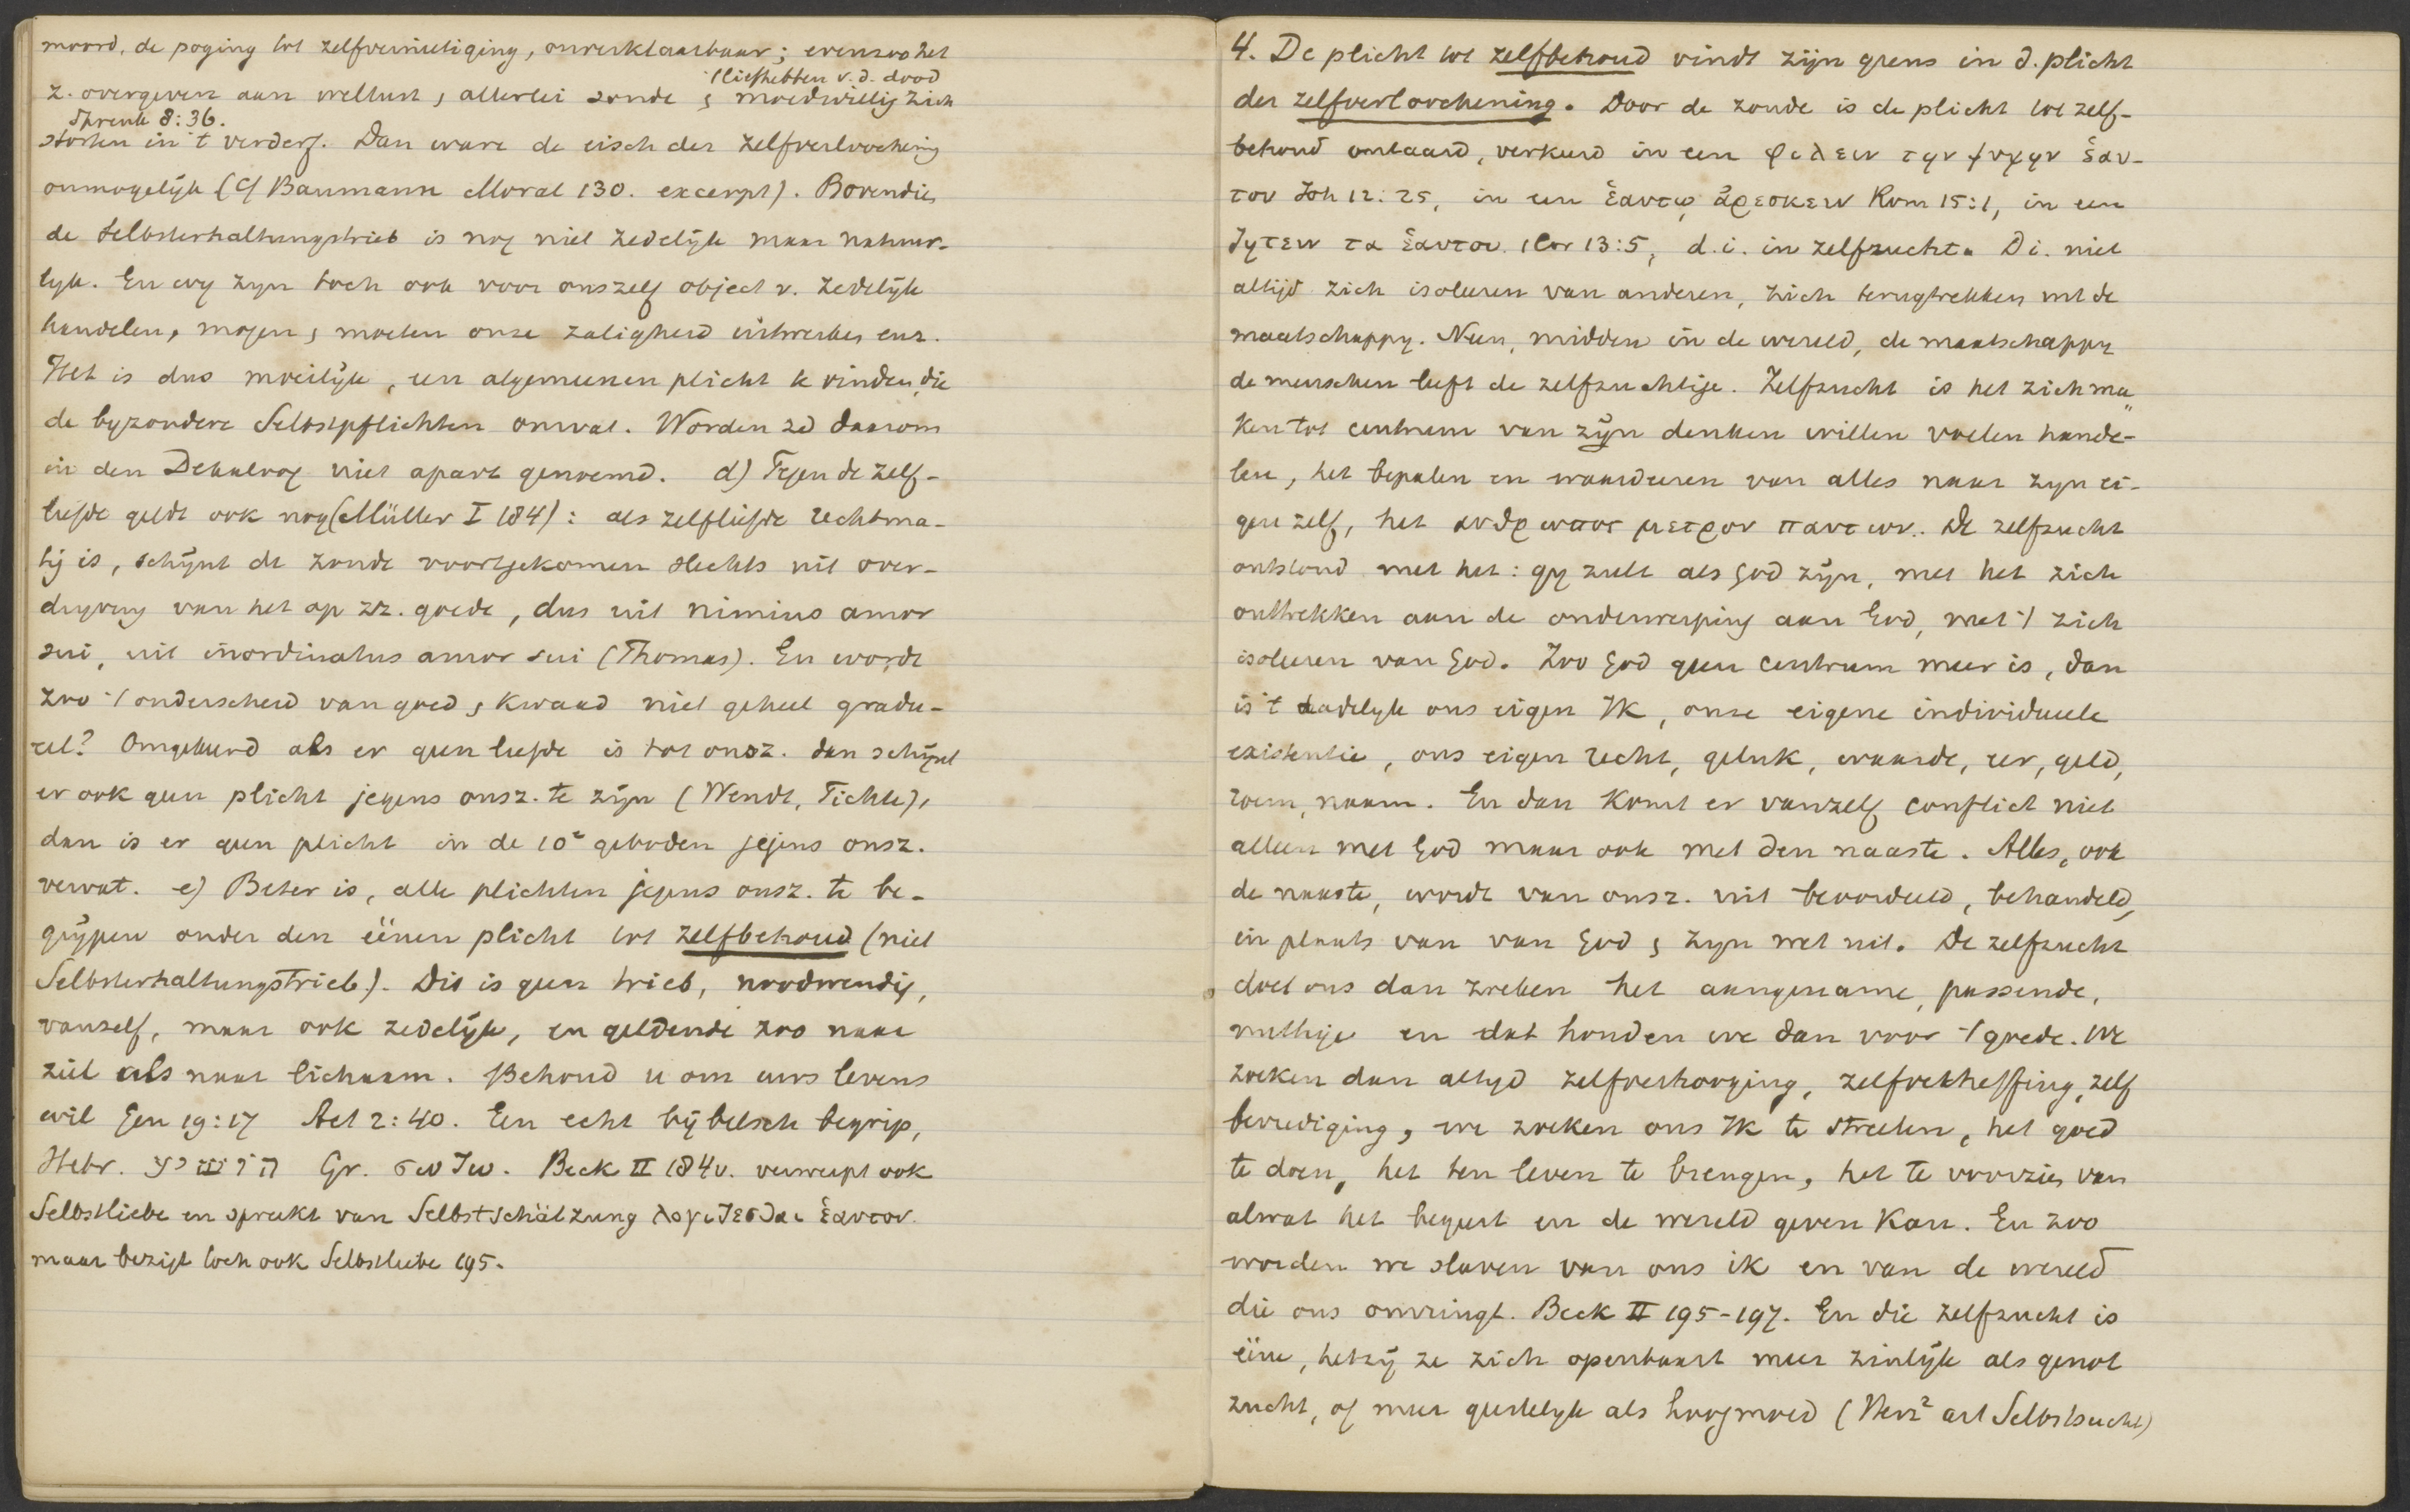 moord, de poging tot zelfvernietiging, onverklaarbaar; evenzoo het
(liefhebben v.d. dood
z. overgeven aan wellust, allerlei zonde, moedwillig zich
Spreuk 8:36.
storten in 't verderf. Dan ware de eisch der zelfverloochening
onmogelijk (cf Baumann Moral 130. excerpt). Bovendien
de Selbsterhaltungstrieb is nog niet zedelijk maar natuur-
lijk. En wy zyn toch ook voor onszelf object v. zedelijk
handelen, mogen, moeten onze zaligheid uitwerken enz.
Het is dus moeilijk, een algemeenen plicht te vinden, die
de byzondere Selbstpflichten omvat. Worden zo daarom
in den Dekaloog niet apart genoemd. d) Tegen de zelf-
liefde geldt ook nog (Müller I 184): als zelfliefde rechtma-
tig is, schijnt de zonde voortgekomen slechts uit over-
dryving van het op zz. goede, dus uit nimius amor
sui, uit inordinatus amor sui (Thomas). En wordt
zoo 't onderscheid van goed, kwaad niet geheel gradu-
eel? Omgekeerd als er geen liefde is tot onsz. dan schijnt
er ook geen plicht jegens onsz. te zijn (Wendt, Fichte),
dan is er geen plicht in de 10 geboden jegens onsz.
vervat. e) Beter is, alle plichten jegens onsz. te be-
grijpen onder den éénen plicht tot zelfbehoud (niet
Selbsterhaltungstrieb). Dit is geen trieb, noodwendig,
vanzelf, maar ook zedelijk, en geldende zoo naar
ziel als naar lichaam. Behoud u om uws levens
wil Gen 19:17 Act 2:40. Een echt bijbelsch begrip,
Hebr. Gr. σωζω. Beck II 184v. verwerpt ook
Selbstliebe en spreekt van Selbstschätzung λογιζεσθαι ἑαυτον.
maar bezigt toch ook Selbstliebe 195.
4. De plicht tot zelfbehoud vindt zijn grens in d. plicht
der zelfverloochening. Door de zonde is de plicht tot zelf-
behoud ontaard, verkeerd in een φιλειν την ψυχην ἑαυ-
του Joh 12:25, in een ἑαυτῳ ἀρεσκειν Rom 15:1, in een
ζητειν τα ἑαυτου 1 Cor 13:5, d.i. in zelfzucht. D.i. niet
altijd zich isoleeren van anderen, zich terugtrekken uit de
maatschappy. Neen, midden in de wereld, de maatschappy
de menschen leeft de zelfzuchtige. Zelfzucht is het zich ma-
ken tot centrum van zijn denken willen voelen hande-
len, het bepalen en waardeeren van alles naar zyn ei-
gen zelf, het ανθρωπος μετρον παντων. De zelfzucht
ontstond met het: gy zult als God zijn, met het zich
onttrekken aan de onderwerping aan God, met 't zich
isoleeren van God. Zoo God geen centrum meer is, dan
is 't dadelyk ons eigen Ik, onze eigene individueele
existentie, ons eigen recht, geluk, waarde, eer, geld,
roem, naam. En dan komt er vanzelf conflict niet
alleen met God maar ook met den naaste. Alles, ook
de naaste, wordt van onsz. uit beoordeeld, behandeld,
in plaats van van God, zyn wet uit. De zelfzucht
doet ons dan zoeken het aangename, passende,
nuttige en dat houden we dan voor 't goede. We
zoeken dan altyd zelfverzorging, zelfverheffing, zelf
bevrediging, we zoeken ons Ik te streelen, het goed
te doen, het ten leven te brengen, het te voorzien van
alwat het begeert en de wereld geven kan. En zoo
worden we slaven van ons ik en van de wereld
die ons omringt. Beck II 195-197. En die zelfzucht is
ééne, hetzij ze zich openbaart meer zinlijk als genot
zucht, of meer geestelyk als hoogmoed (Herz² art Selbstsucht)